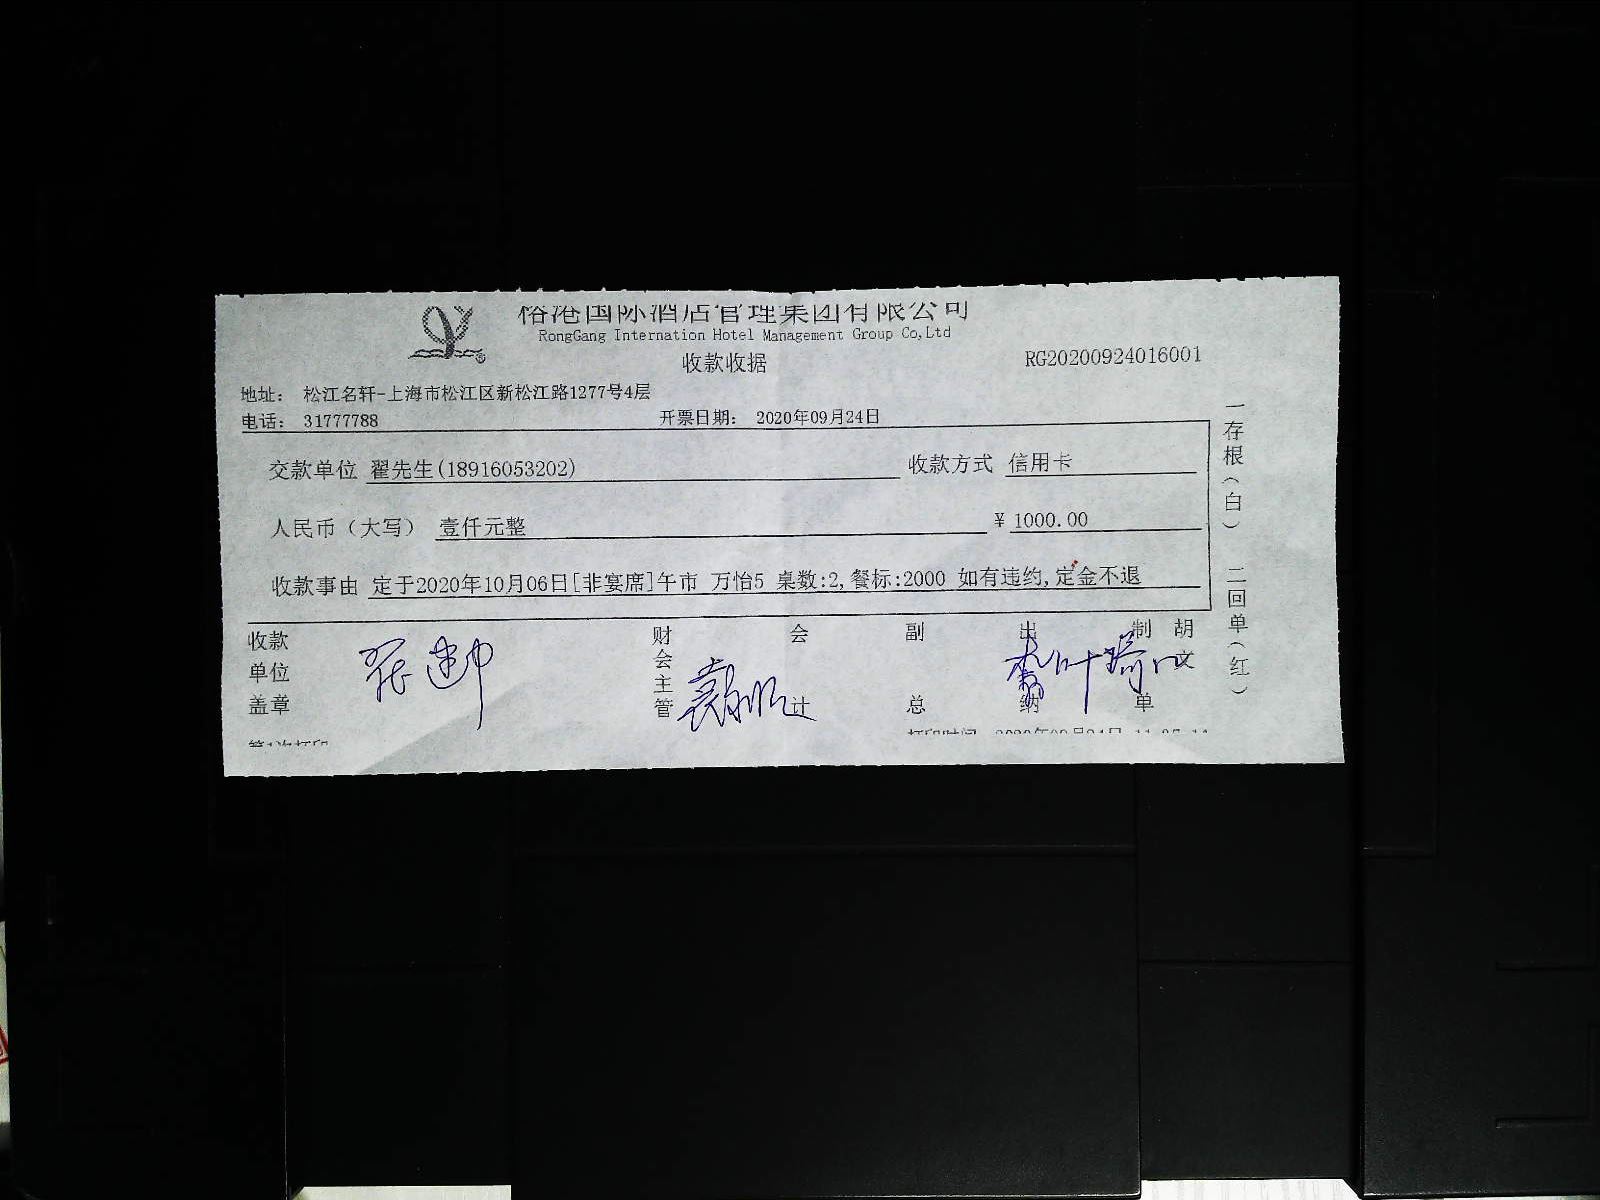 港国际酒店管理集团有限公司
RongGang Internation Hotel Management Group Co,Ltd
收款收据
RG20200924016001
地址： 松江名轩-上海市松江区新松江路1277号4层
电话： 31777788
开票日期： 2020年09月24日
交款单位 翟先生(18916053202)
收款方式 信用卡
人民币（大写） 壹仟元整
¥ 1000.00
收款事由 定于2020年10月06日[非宴席]午市 万怡5 桌数:2,餐标:2000 如有违约,定金不退
一存根（白） 二回单（红）
收款单位盖章
财会主管
会计
副总
出纳
制单
胡文
第1次打印
打印时间 2020年09月24日